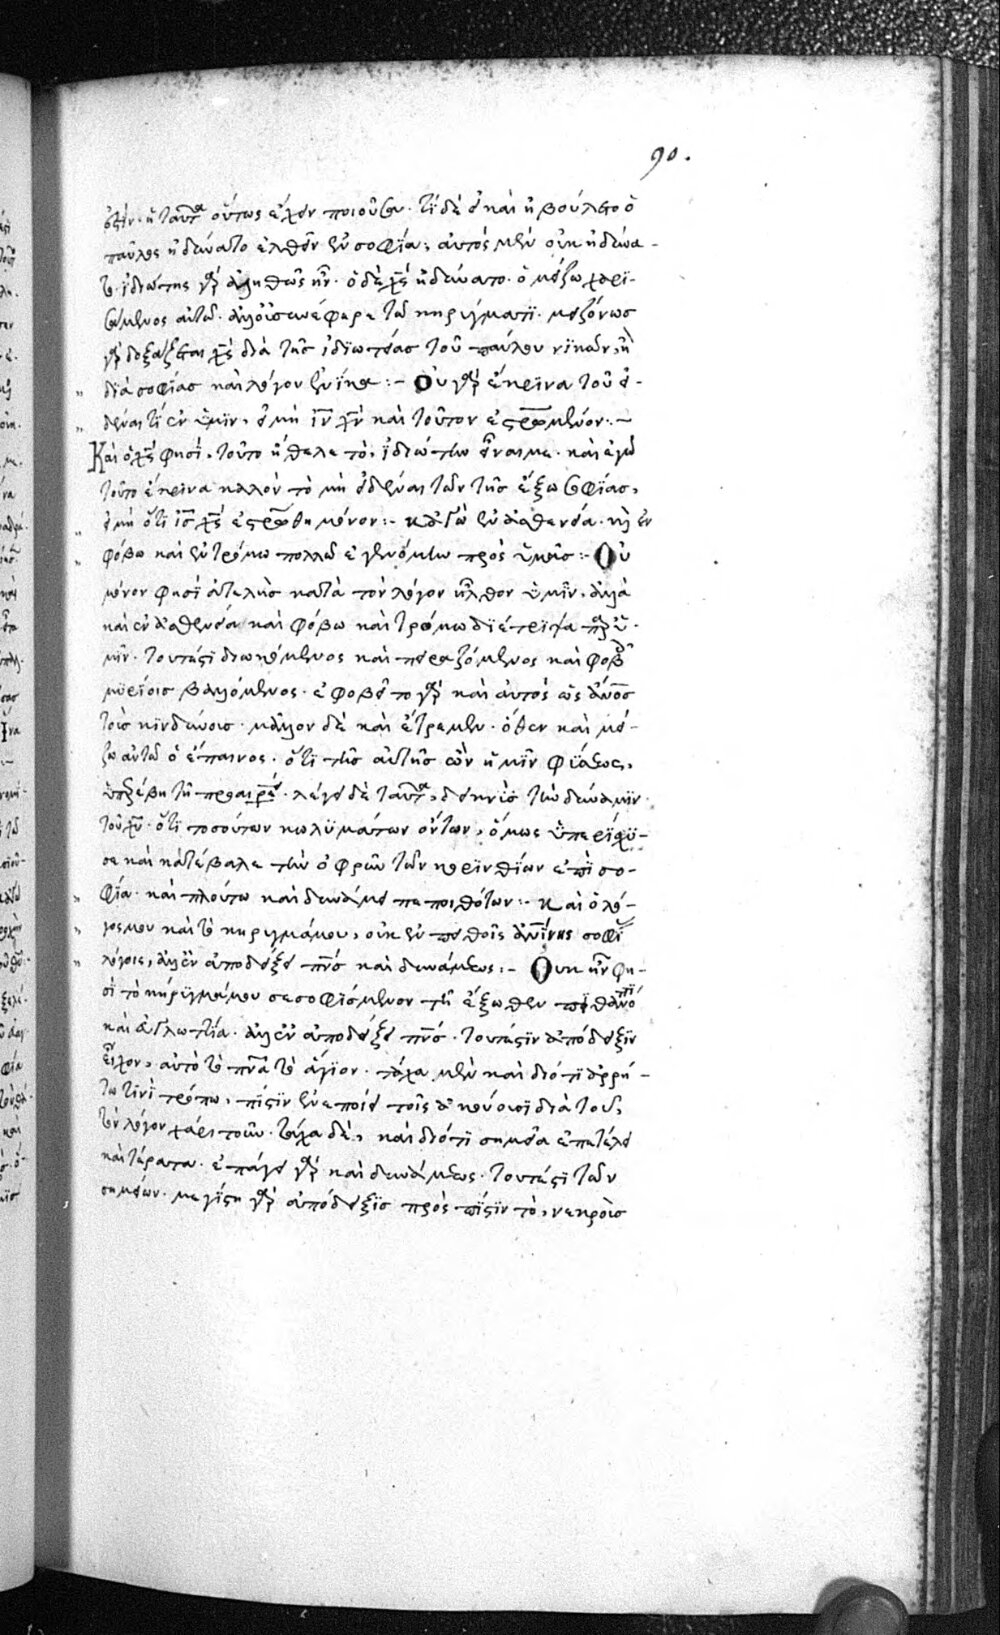 90.
ἐστὶν. ἢ ταῦτα οὕτως ἔχειν ποιοῦσιν. τί δὲ εἰ καὶ ἠβούλετο ὁ
παῦλος ἠδύνατο ἐλθεῖν ἐν σοφία; αὐτὸς μὲν οὐκ ἠδύνα-
το. ἰδιώτης γὰρ ἀληθῶς ἦν. ὁ δὲ χς ἠδύνατο. ὁ μείζω χαρι-
σάμενος αὐτῶ. ἀλλ' οἷς συνέφερε τῶ κηρύγματι. μειζόνως
γὰρ δοξάζεται χς διὰ τῆς ἰδιωτείας τοῦ παύλου νικῶν, ἢ
διὰ σοφίας καὶ λόγου ἐνίκα :- Οὐ γὰρ ἔκρινα τοῦ εἰ-
δέναι τὶ ἐν ὑμῖν, εἰ μὴ ιν χν καὶ τοῦτον ἐσταυρωμένον :-
Καὶ ὁ χς φησὶ, τοῦτο ἤθελε τὸ, ἰδιώτην εἶναι με. καὶ ἐγὼ
τοῦτο ἔκρινα καλὸν τὸ μὴ εἰδέναι τῶν τῆς ἔξω σοφίας,
εἰ μὴ ὅτι ις χς ἐσταυρωθη μόνον :- κἀγὼ ἐν ἀσθενεία. καὶ ἐν
φόβω καὶ ἐν τρόμω πολλῶ ἐγενόμην πρὸς ὑμᾶς :- Οὐ
μόνον φησὶ ἀτελὴς κατὰ τὸν λόγον ἦλθον ὑμῖν, ἀλλὰ
καὶ ἐν ἀσθενεία καὶ φόβω καὶ τρόμω διέτριψα παρ' ὑ-
μῖν. τουτέστι διωκόμενος καὶ πειραζόμενος καὶ φόβοις
μυρίοις βαλλόμενος. ἐφοβεῖτο γὰρ καὶ αὐτὸς ὡς ἄνος
τοὺς κινδύνους. μᾶλλον δὲ καὶ ἔτρεμεν. ὅθεν καὶ μεί-
ζω αὐτῶ ὁ ἔπαινος. ὅτι τῆς αὐτῆς ὢν ἡμῖν φύσεως,
ὑπερέβη τῆ προαιρέσει. λέγει δὲ ταῦτα, δεικνὺς τὴν δύναμιν
τοῦ χυ. ὅτι τοσούτων κωλυμάτων ὄντων, ὅμως ὑπερίσχυ-
σε καὶ κατέβαλε τὴν ὀφρὺν τῶν κορινθίων ἐπὶ σο-
φία. καὶ πλούτω καὶ δυνάμει πεποιθότων :- Καὶ ὁ λό-
γος μου καὶ τὸ κήρυγμά μου, οὐκ ἐν πειθοῖς ἀνίνης σοφί
λόγοις, ἀλλ' ἐν ἀποδείξει πνς καὶ δυνάμεως :- Οὐκ ἦν φη-
σὶ τὸ κήρυγμά μου σεσοφισμένον τῆ ἔξωθεν πιθανότητι
καὶ εὐγλωττία. ἀλλ' ἐν ἀποδείξει πνς. τουτέστιν ἀπόδειξιν
εἶχον, αὐτὸ τὸ πνα τὸ ἅγιον. τάχα μὲν καὶ διότι ἀρρή-
τω τινὶ τρόπω, πίστιν ἐνεποίει τοῖς ἀκούουσι διὰ τοῦ,
τὸν λόγον χαριτοῦν. τάχα δὲ, καὶ διότι σημεῖα ἐπετέλει
καὶ τέρατα. ἐπάγει γὰρ καὶ δυνάμεως. τουτέστι τῶν
σημείων. μεγίστη γὰρ ἀπόδειξις πρὸς πίστιν τὸ, νεκροὺς